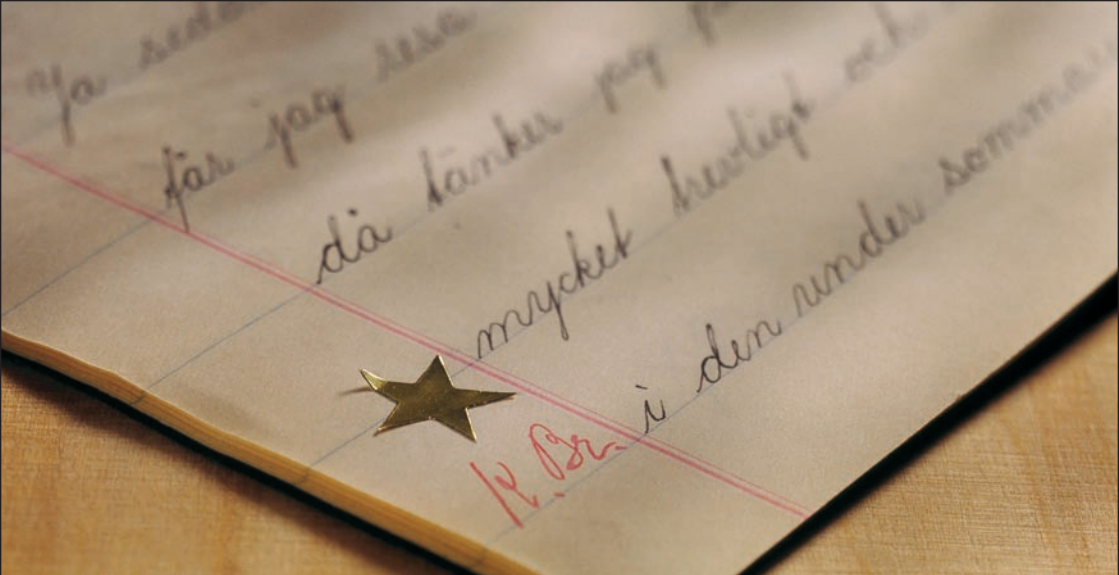 Ja sedan
får jag resa
då tänker jag på
mycket trevligt och
i den under sommar
K. Br.